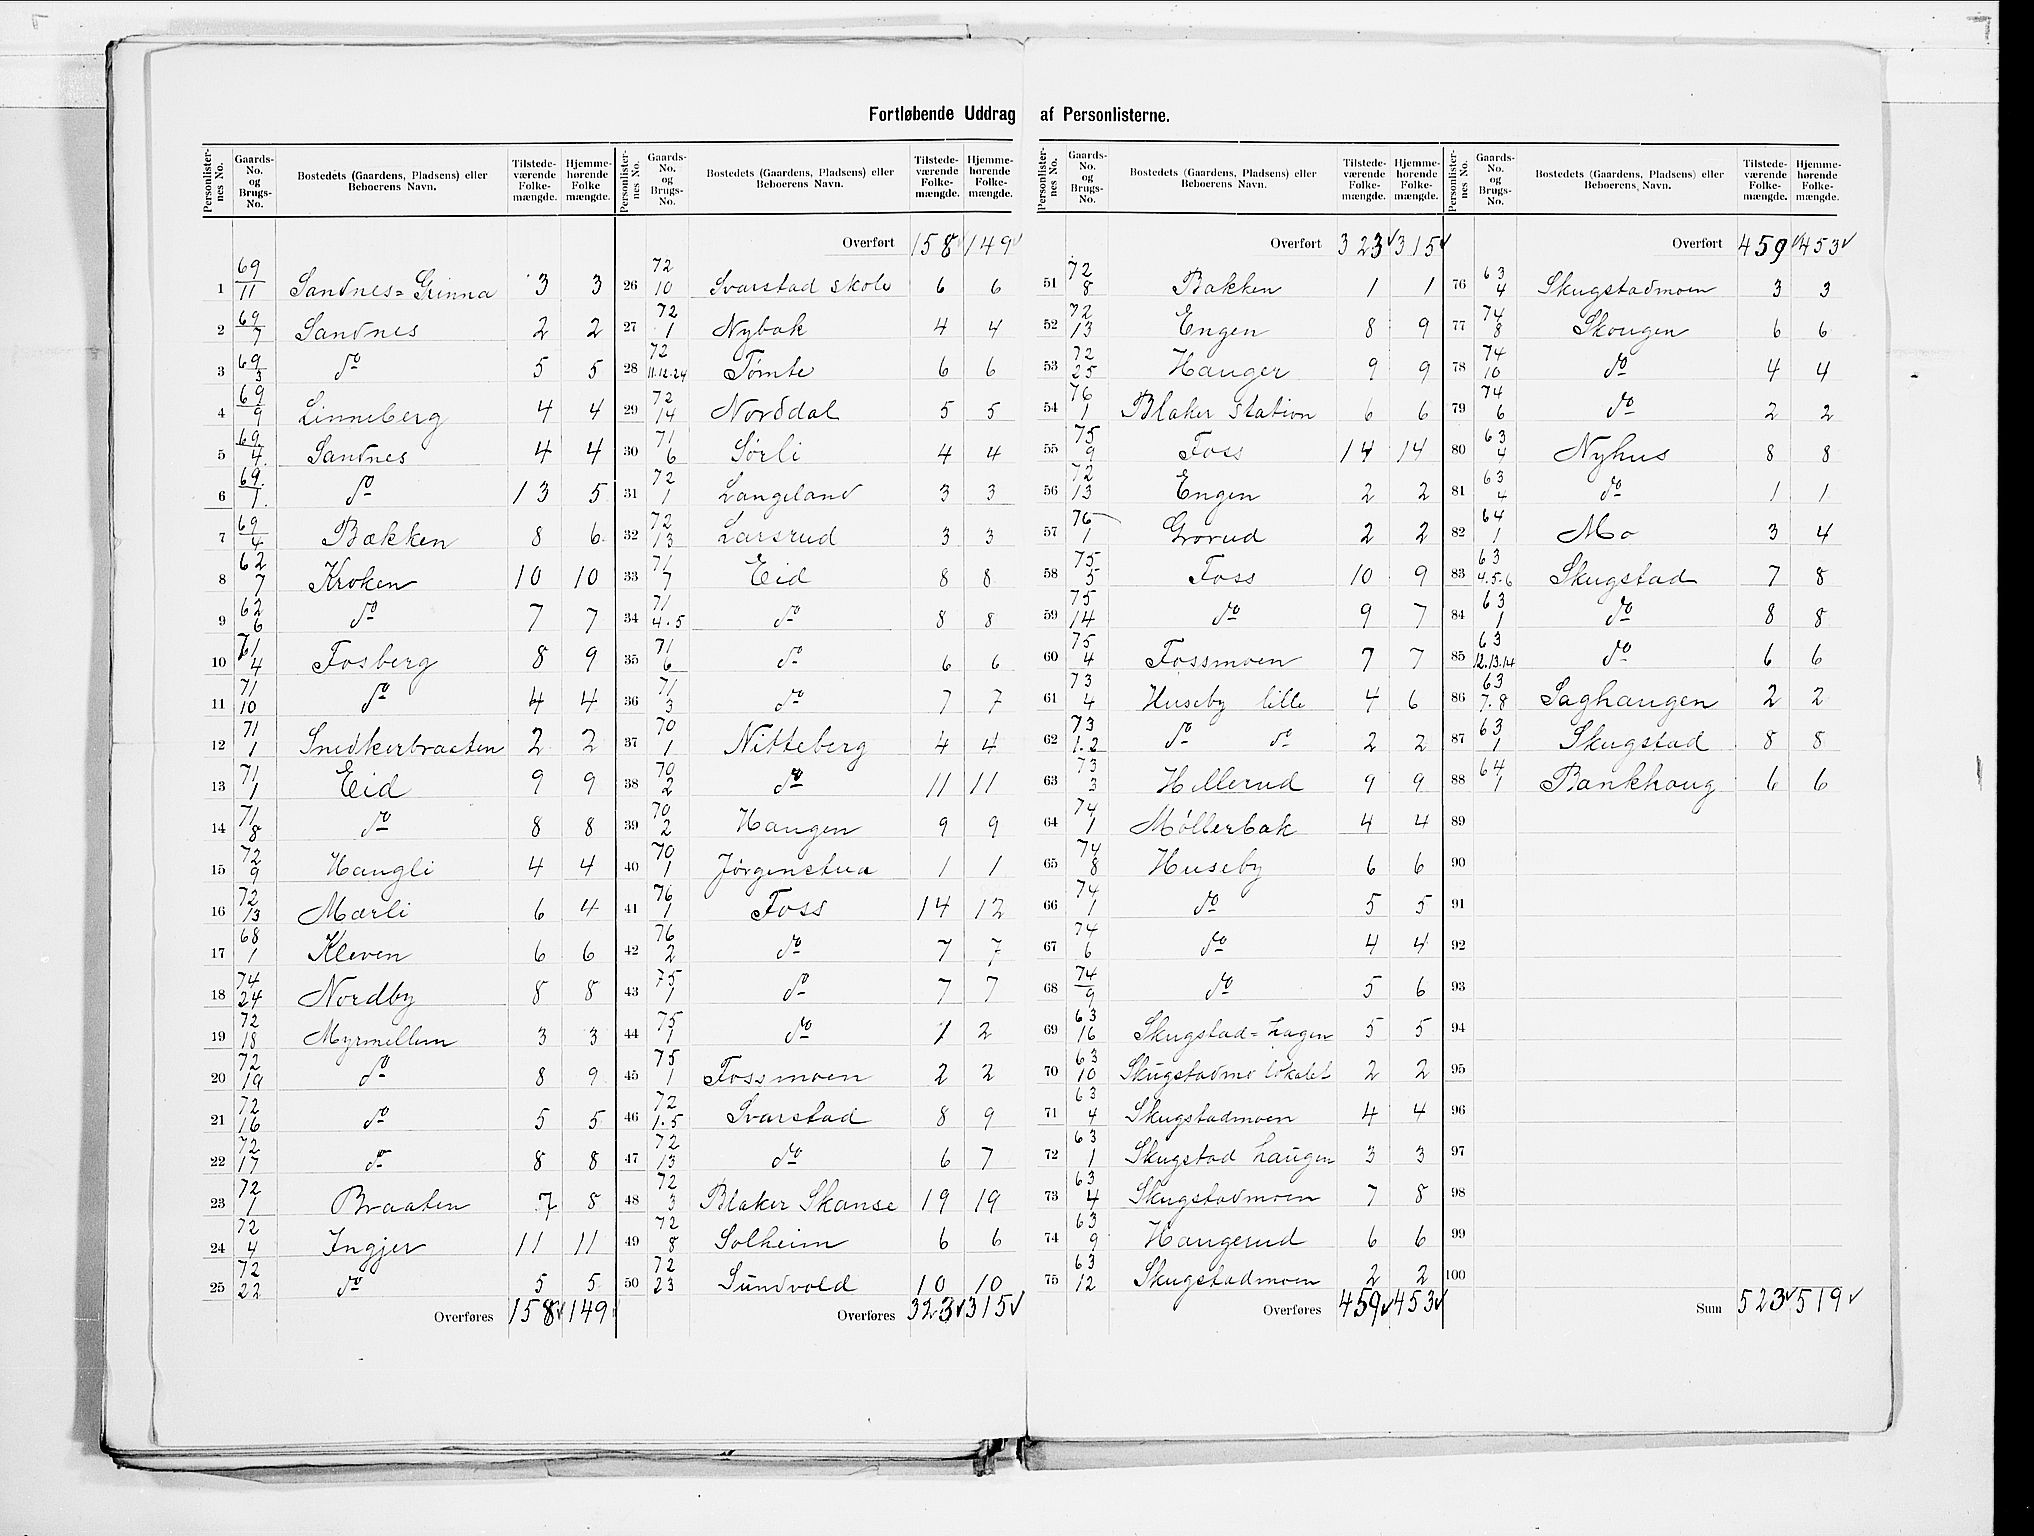 Fortløbende Uddrag af Personlisterne.
Personlisternes No. Gaards-No. og Brugs-No. Bostedets (Gaardens, Pladsens) eller Beboerens Navn. Tilstedeværende Folkemængde. Hjemmehørende Folkemængde.
1 69/11 Sandnes=Grinna 3 3
2 69/7 Sandnes 2 2
3 69/3 do 5 5
4 69/9 Linneberg 4 4
5 69/4 Sandnes 4 4
6 69/1 do 13 5
7 69/4 Bækken 8 6
8 62/7 Kroken 10 10
9 62/6 do 7 7
10 71/4 Fosberg 8 9
11 71/10 do 4 4
12 71/1 Snedkerbraaten 2 2
13 71/1 Eid 9 9
14 71/8 do 8 8
15 72/9 Haugli 4 4
16 72/13 Marli 6 4
17 68/1 Kleven 6 6
18 74/24 Nordby 8 8
19 72/18 Myrmellem 3 3
20 72/19 do 8 9
21 72/16 do 5 5
22 72/17 do 8 8
23 72/1 Braaten 7 8
24 72/4 Ingjer 11 11
25 72/22 do 5 5
Overføres 158 149
Personlisternes No. Gaards-No. og Brugs-No. Bostedets (Gaardens, Pladsens) eller Beboerens Navn. Tilstedeværende Folkemængde. Hjemmehørende Folkemængde.
Overført 158 149
26 72/10 Svarstad skole 6 6
27 72/1 Nybak 4 4
28 72/11.12.24 Tømte 6 6
29 72/14 Norddal 5 5
30 71/6 Sørli 4 4
31 72/1 Langeland 3 3
32 72/13 Larsrud 3 3
33 71/7 Eid 8 8
34 71/4.5 do 8 8
35 71/6 do 6 6
36 71/3 do 7 7
37 70/1 Nitteberg 4 4
38 70/2 do 11 11
39 70/2 Haugen 9 9
40 70/1 Jørgenstua 1 1
41 76/1 Foss 14 12
42 76/2 do 7 7
43 75/1 do 7 7
44 75/1 do 1 2
45 75/1 Fossmoen 2 2
46 72/1.5 Svarstad 8 9
47 72/13 do 6 7
48 72/3 Blaker Skanse 19 19
49 72/8 Solheim 6 6
50 72/23 Sundvold 10 10
Overføres 323 315
Personlisternes No. Gaards-No. og Brugs-No. Bostedets (Gaardens, Pladsens) eller Beboerens Navn. Tilstedeværende Folkemængde. Hjemmehørende Folkemængde.
Overført 323 315
51 72/8 Bakken 1 1
52 72/13 Engen 8 9
53 72/25 Hauger 9 9
54 76/1 Blaker station 6 6
55 75/9 Foss 14 14
56 72/13 Engen 2 2
57 76/1 Grorud 2 2
58 75/5 Foss 10 9
59 75/14 do 9 7
60 75/4 Fossmoen 7 7
61 73/4 Huseby lille 4 6
62 73/1.2 do do 2 2
63 73/3 Hillerud 9 9
64 74/1 Møllerbak 4 4
65 74/8 Huseby 6 6
66 74/1 do 5 5
67 74/6 do 4 4
68 74/9 do 5 6
69 63/16 Skugstad=hagen 5 5
70 63/10 Skugstadmo lokalet 2 2
71 63/4 Skugstadmoen 4 4
72 63/1 Skugstad haugen 3 3
73 63/4 Skugstadmoen 7 8
74 63/9 Haugerud 6 6
75 63/12 Skugstadmoen 2 2
Overføres 459 453
Personlisternes No. Gaards-No. og Brugs-No. Bostedets (Gaardens, Pladsens) eller Beboerens Navn. Tilstedeværende Folkemængde. Hjemmehørende Folkemængde.
Overført 459 453
76 63/4 Skugstadmoen 3 3
77 74/8 Skougen 6 6
78 74/10 do 4 4
79 74/6 do 2 2
80 63/4 Nyhus 8 8
81 63/4 do 1 1
82 64/1 Mo 3 4
83 63/4.5.6 Skugstad 7 8
84 63/1 do 8 8
85 63/12.13.14 do 6 6
86 63/7.8 Saghaugen 2 2
87 63/1 Skugstad 8 8
88 64/1 Bankhaug 6 6
89
90
91
92
93
94
95
96
97
98
99
100
Sum 523 519